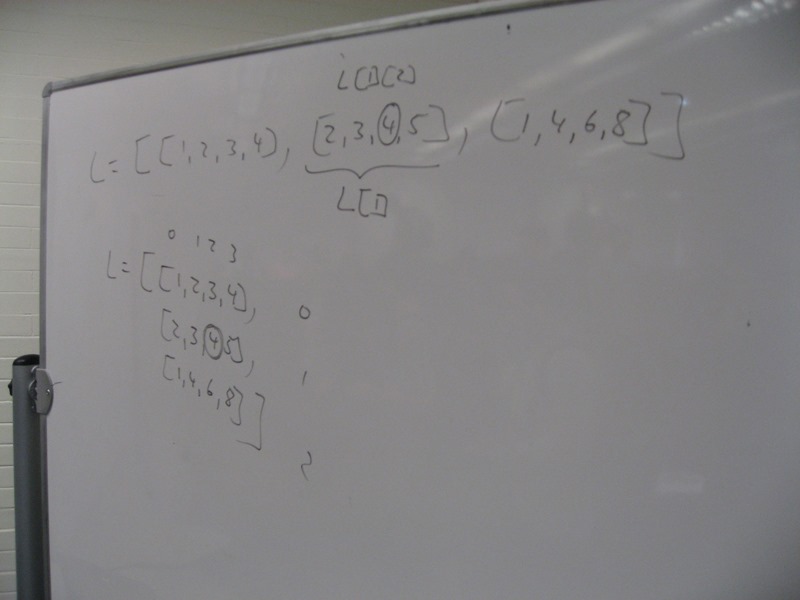 L[1][2]
L = [[1,2,3,4], [2,3,4,5], [1,4,6,8]]
L[1]
0 1 2 3
L = [[1,2,3,4], 0
[2,3,4,5], 1
[1,4,6,8]]
2